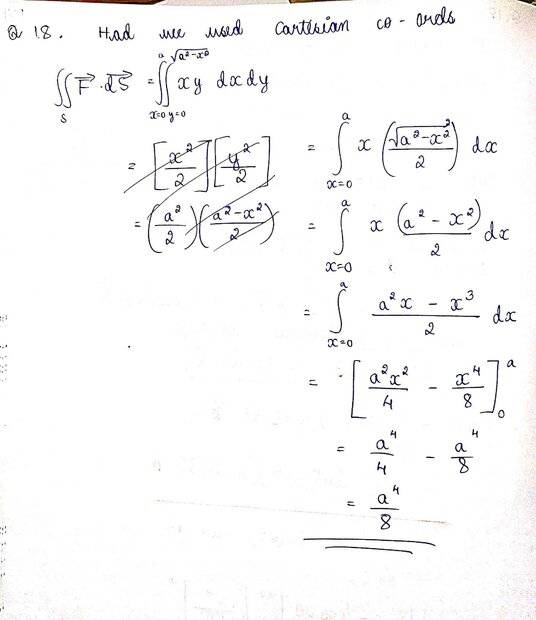 Q 18. Had we used Cartesian co-ords
∬_S F⃗·dS⃗ = ∫_{x=0}^{a} ∫_{y=0}^{√(a²-x²)} xy dx dy
= [x²/2] [y²/2]
= (a²/2) ((a²-x²)/2)
= ∫_{x=0}^{a} x (√(a²-x²)²/2) dx
= ∫_{x=0}^{a} x (a² - x²)/2 dx
= ∫_{x=0}^{a} (a²x - x³)/2 dx
= [a²x²/4 - x⁴/8]_0^a
= a⁴/4 - a⁴/8
= a⁴/8